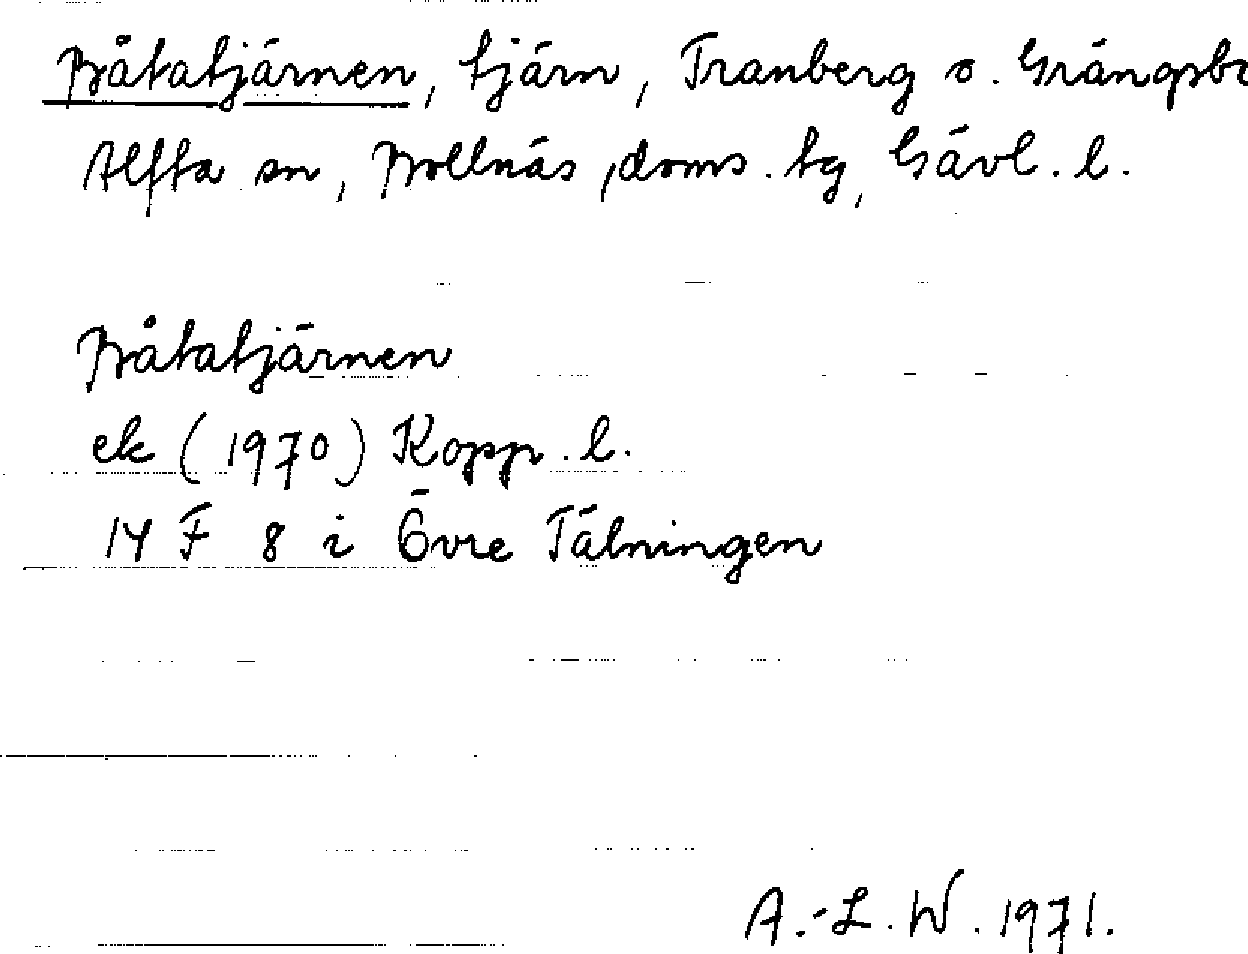 Båtatjärnen, tjärn, Tranberg o. Grängsbo
Alfta sn, Bollnäs, doms. tg, Gävl. l.
Båtatjärnen
ek (1970) Kopp. l.
14 F 8 i Övre Tälningen
A.-L. W. 1971.